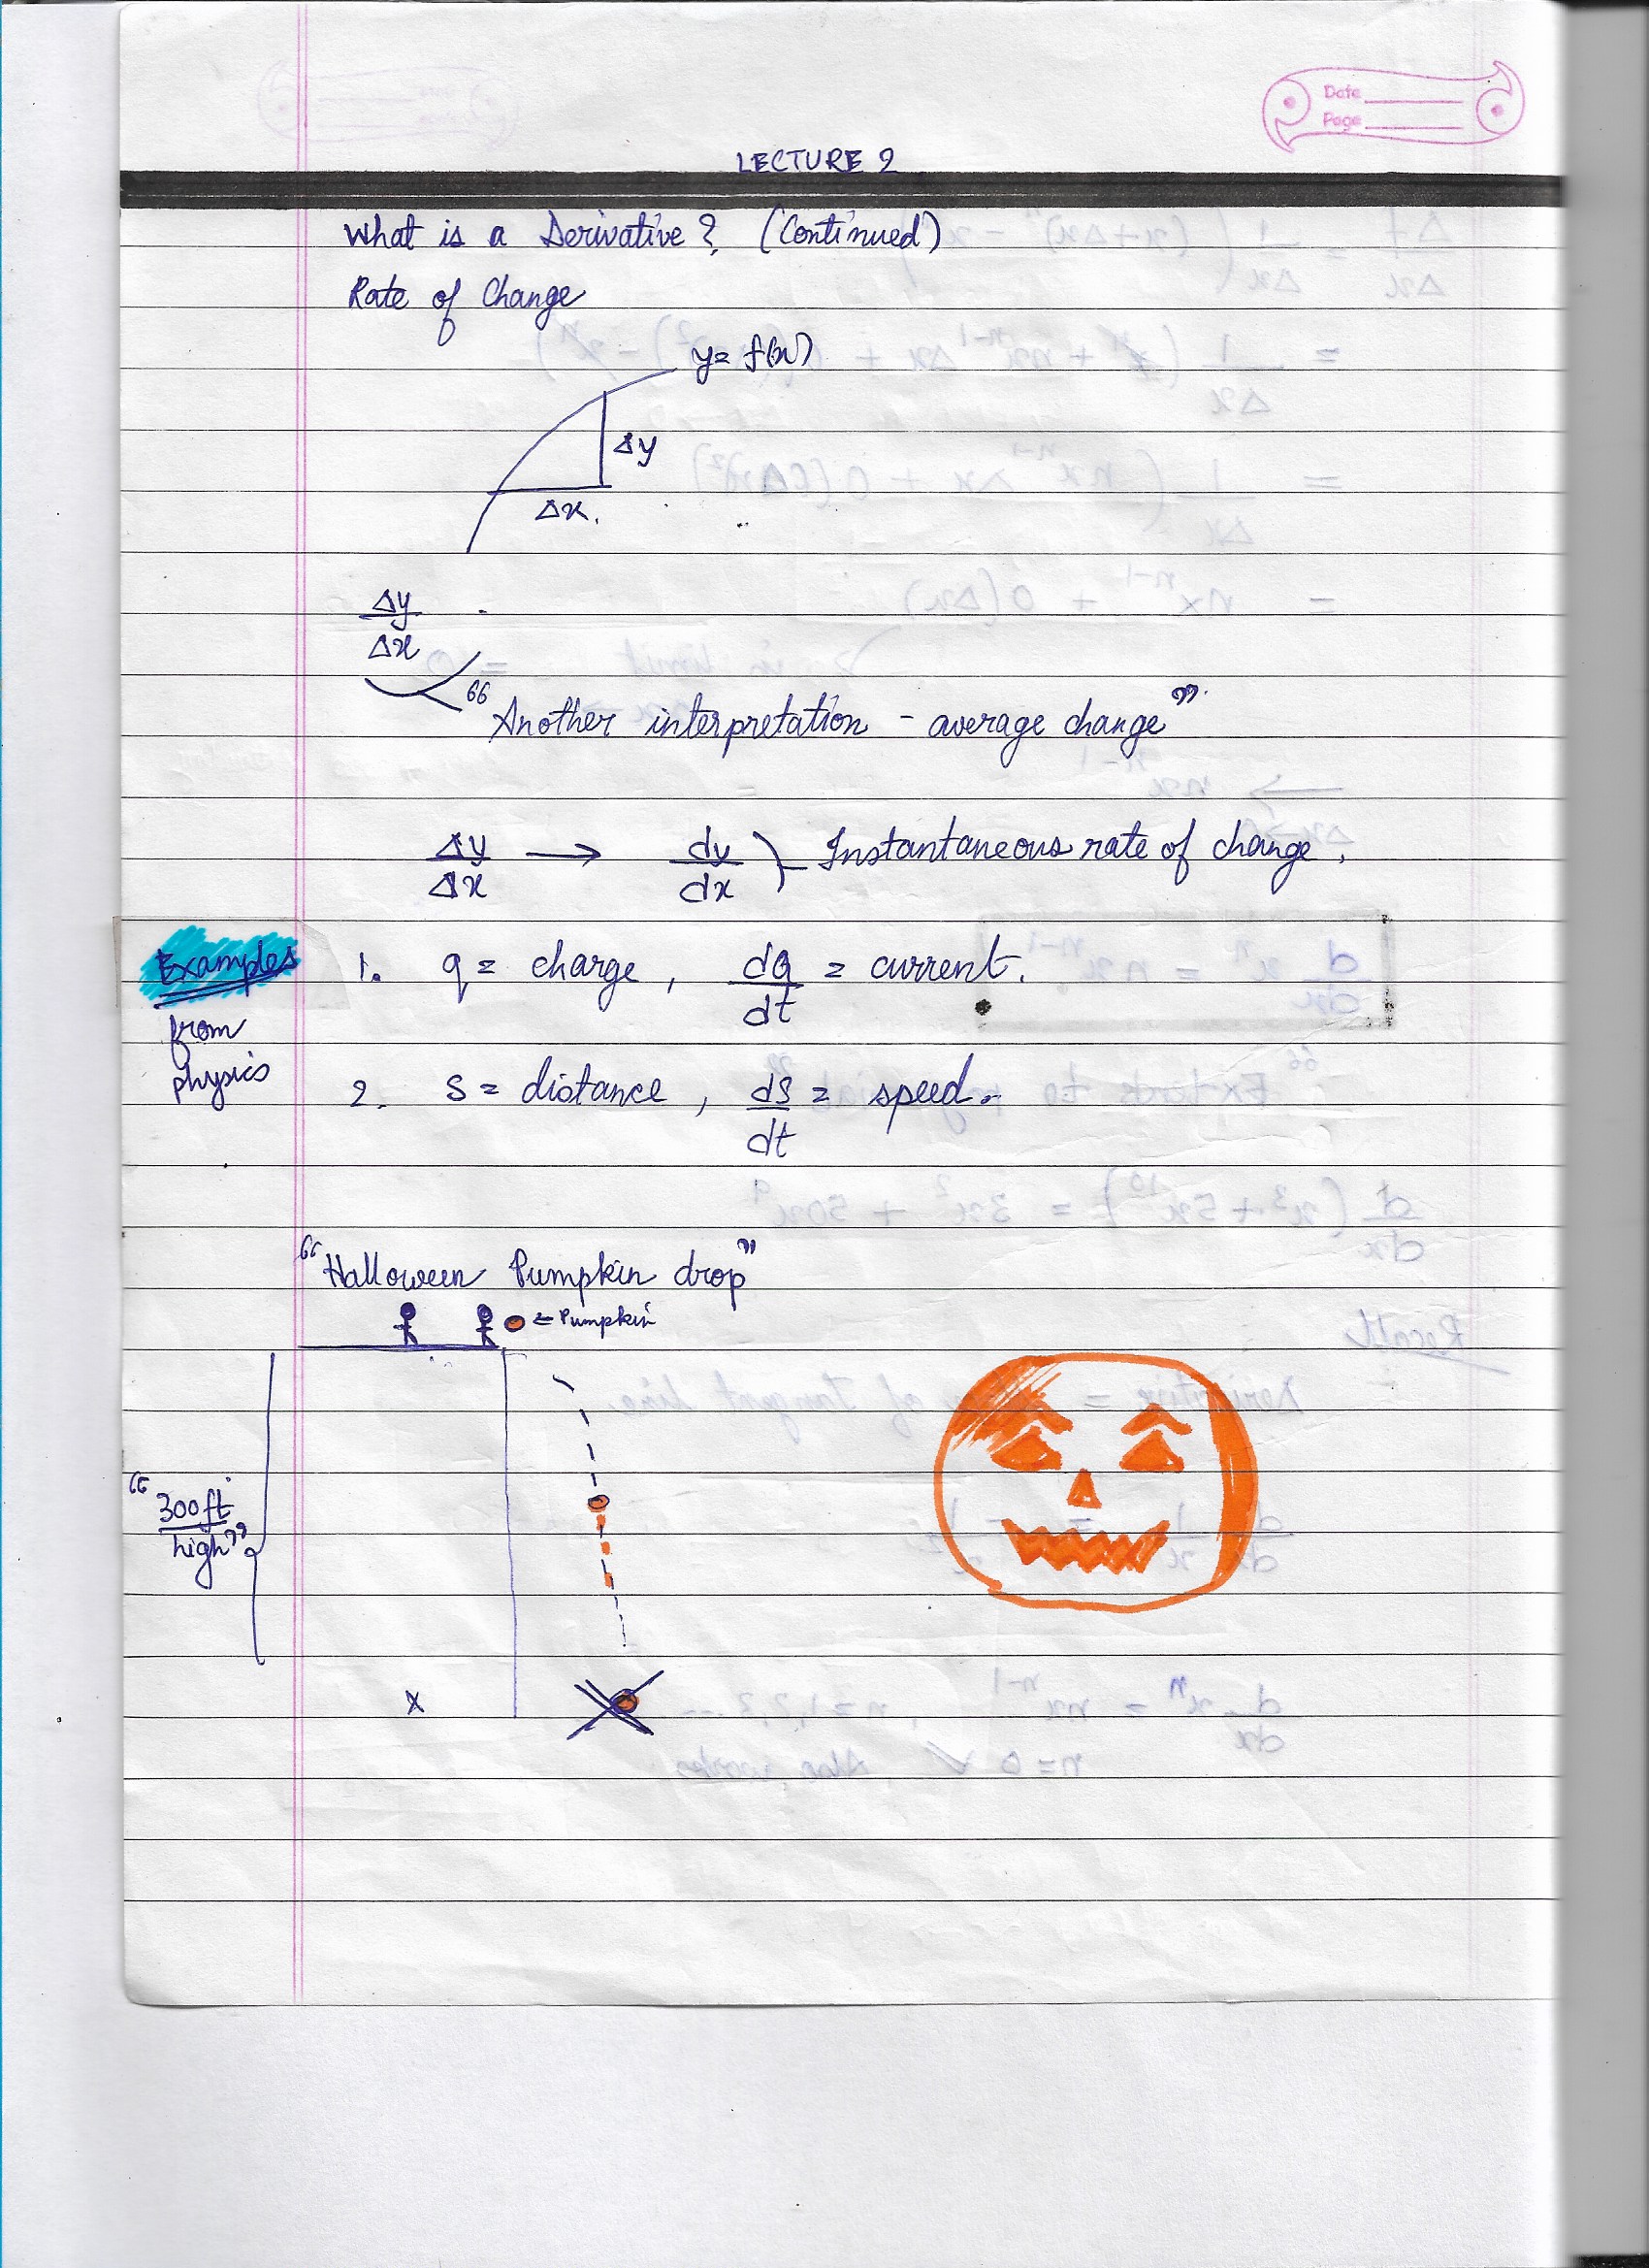 Date
Page
LECTURE 2
What is a Derivative? (Continued)
Rate of Change
y = f(x)
Δy
Δx.
Δy
Δx
“Another interpretation - average change”
Δy/Δx → dy/dx } Instantaneous rate of change.
Examples
from
physics
1. q = charge, dq/dt = current.
2. S = distance, dS/dt = speed.
“Halloween Pumpkin drop”
← Pumpkin
“300ft
high”
x